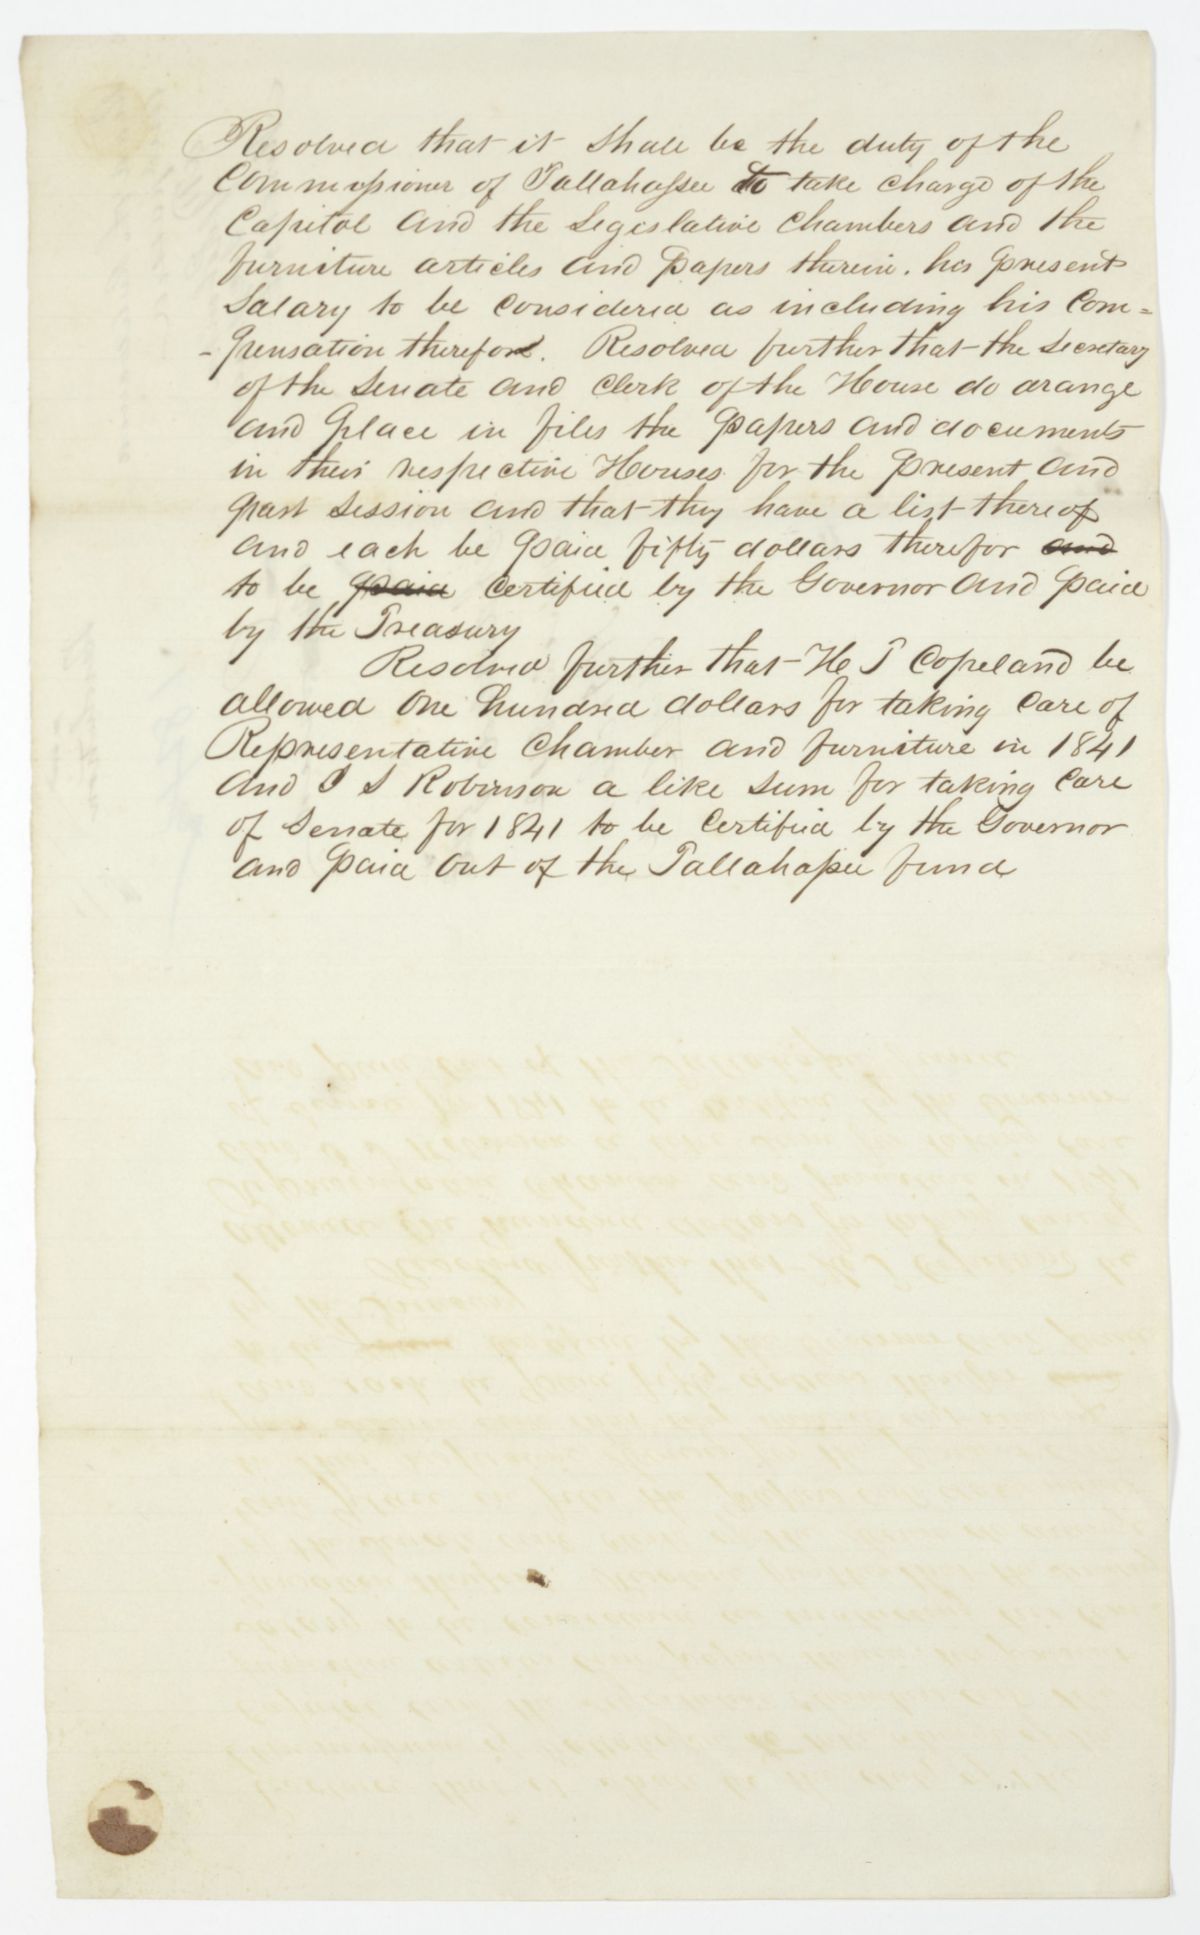 Resolved that it shall be the duty of the
Commissioner of Tallahassee to take charge of the
Capitol and the Legislative Chambers and the
furniture articles and papers therein. his present
Salary to be considered as including his Com=
-pensation therefor. Resolved further that the Secretary
of the Senate and Clerk of the House do arange
and place in files the papers and documents
in their respective Houses for the present and
past Session and that they have a list thereof
and each be paid fifty dollars therefor and
to be paid certified by the Governor and paid
by the Treasury
Resolved further that H T Copeland be
allowed One hundred dollars for taking Care of
Representative Chamber and furniture in 1841
and S Robinson a like sum for taking Care
of Senate for 1841 to be Certified by the Governor
and paid out of the Tallahassee fund